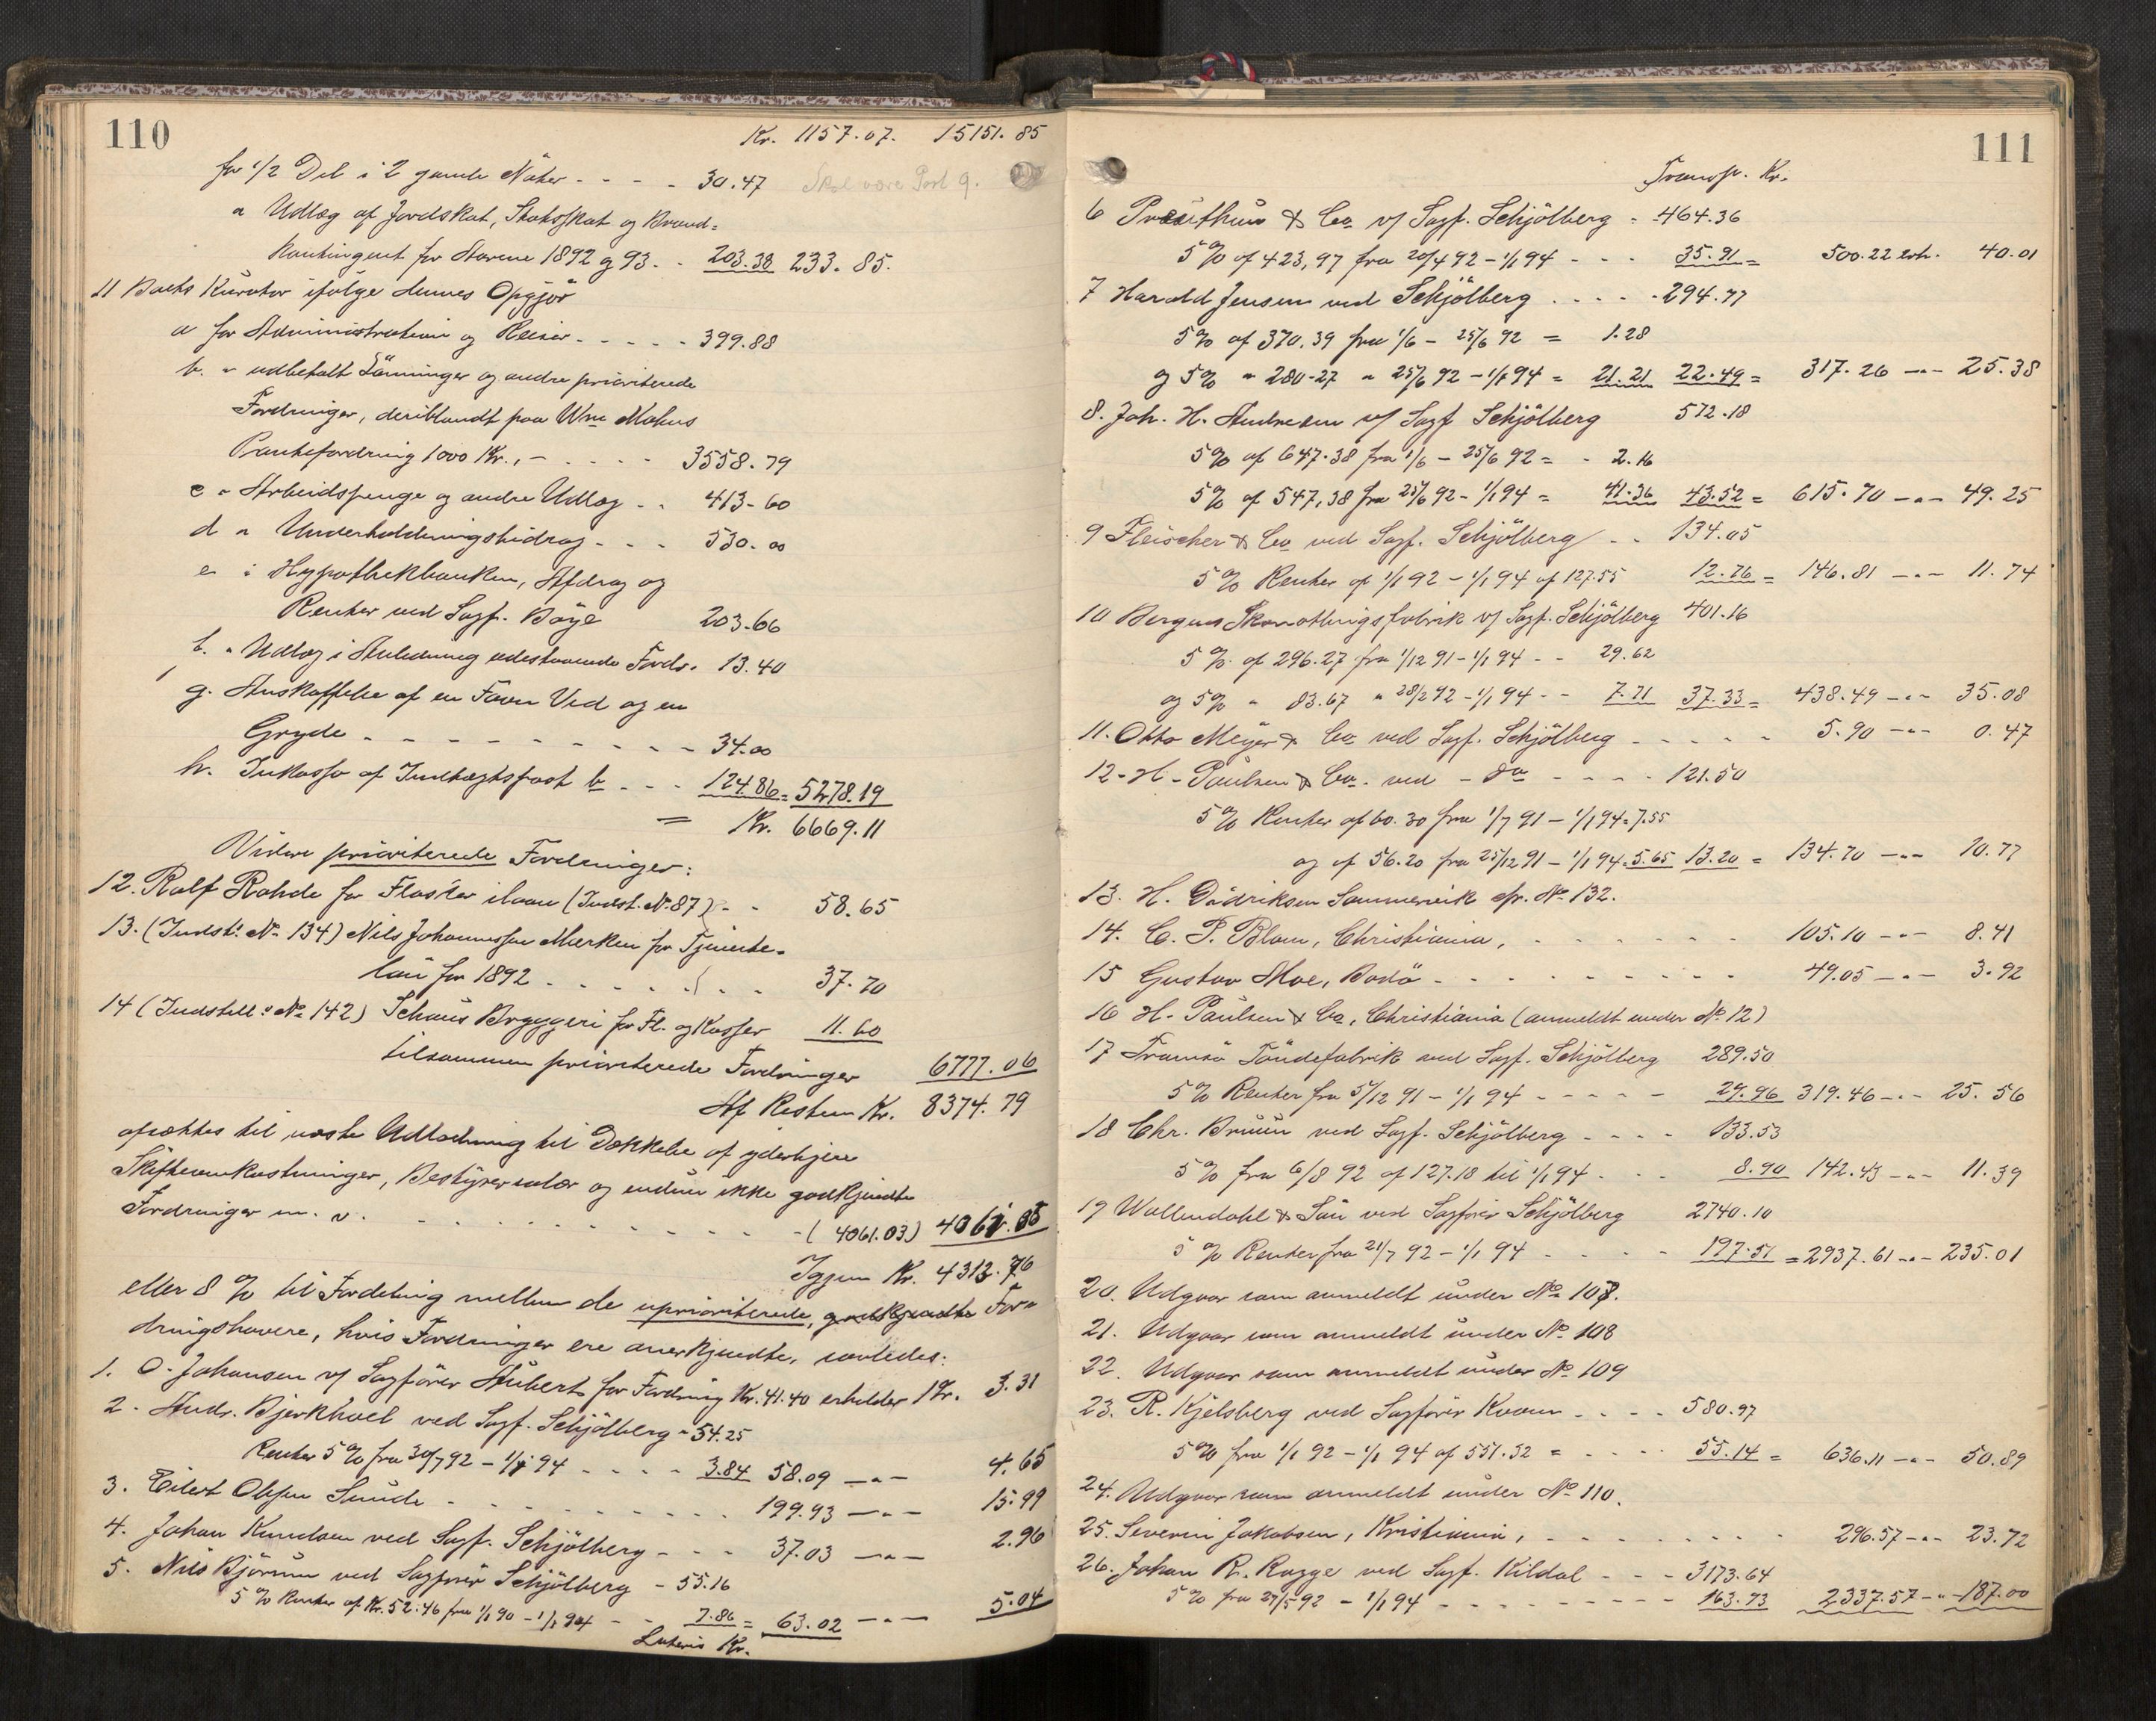 110
Kr. 1157.07. 15151.85
for 1/2 Del i 2 gamle Nöter - - - - 30.47 Skal være Post 9.
a Udlæg af Jordskat, Statsskat og Brand=
kontingent for Aarene 1892 og 93. - 203.38 233.85.
11 Boets Kurator ifölge Hennes Opgjör
a for Administration og Reiser - - - - - 399.88
b. " udbetalt Lönninger og andre prioriterede
Fordringer, deriblandt paa Wm Mohns
Pantefordring 1000 Kr., - - - - - 3558.79
c " Arbeidspenge og andre Udlæg - - 413.60
d " Underholdningsbidrag - - - 530.00
e i Hypothekbanken, Afdrag og
Renter ved Sagf. Böye 203.66
f. " Udlæg i Anledning udestaaende Fordr. 13.40
g. Anskaffelse af en Favn Ved og en
Gryde - - - - - - - - - - 34.00
h. Inkasso af Indtægtspost b - - - 124.86 = 5278.19
= Kr. 6669.11
Videre prioriterede Fordringer:
12. Rolf Rohde for Flasker ilaan (Indst. No 87) - - 58.65
13. (Indst: No 134) Nils Johannessen Marken for Tjeneste-
lön for 1892 - - - - - - - 37.70
14 (Indstill: No 142) Schous Bryggeri for Fl. og Kasser 11.60
tilsammen prioriterede Fordringer 6777.06
Af Resten Kr. 8374.79
afsættes til næste Udlodning til Dækkelse af yderligere
Skifteomkostninger, Bestyrersalær og endnu ikke godkjendte
Fordringer m. v. - - - - - - - - (4061.03) 4061.03
Igjen Kr. 4313.76
eller 8 % til Fordeling mellem de uprioriterede, godkjendte For=
dringshavere, hvis Fordringer ere anerkjendte, saaledes:
1. O. Johansen v/ Sagförer Hubert for Fordring Kr. 41.40 erholder Kr. 3.31
2. Andr. Bjerkhoel ved Sagf. Schjölberg - 54.25
Renter 5 % fra 30/7 92 - 1/1 94 - - - - 3.84 58.09 -"- 4.65
3. Eilert Olsen Sunde - - - - - - - - 199.93 -"- 15.99
4. Johan Knudsen ved Sagf. Schjölberg - - - 37.03 -"- 2.96
5. Nils Björnum ved Sagförer Schjölberg - 55.16
5 % Renter af Kr. 52.46 fra 1/1 90 - 1/1 94 - - 7.86 = 63.02 -"- 5.04
Lateris Kr.
111
Transp. Kr.
6 Preuthun & Co v/ Sagf. Schjölberg - 464.36
5 % af 423,97 fra 20/4 92 - 1/1 94 - - - 35.91 = 500.22 erh. 40.01
7 Harald Jensen ved Schjölberg - - - - - 294.77
5 % af 370.39 fra 1/6 - 25/6 92 = 1.28
og 5 % " 280.27 " 25/6 92 - 1/1 94 = 21.21 22.49 = 317.26 -"- 25.38
8. Joh. H. Andresen v/ Sagf Schjölberg 572.18
5 % af 647.38 fra 1/6 - 25/6 92 = - 2.16
5 % af 547,38 fra 25/6 92 - 1/1 94 = 41.36 43.52 = 615.70 -"- 49.25
9 Fleischer & Co ved Sagf. Schjölberg - - 134.05
5 % Renter af 1/1 92 - 1/1 94 af 127.55 12.76 = 146.81 -"- 11.74
10 Bergens Skomotlingsfabrik v/ Sagf. Schjölberg 401.16
5 % af 296.27 fra 1/12 91 - 1/1 94 - - 29.62
og 5 % " 83.67 " 28/2 92 - 1/1 94 - - 7.71 37.33 = 438.49 -"- 35.08
11. Otto Meyer & Co ved Sagf. Schjölberg - - - - - 5.90 -"- 0.47
12. H. Paulsen & Co. ved - do - - - - 121.50
5 % Renter af 60.30 fra 1/7 91 - 1/1 94 = 7.55
og af 56.20 fra 25/12 91 - 1/1 94 = 5.65 13.20 = 134.70 -"- 10.77
13. H. Didriksen Sommervik cfr. No 132.
14. C. P. Blom, Christiania, - - - - - - 105.10 -"- 8.41
15 Gustav Moe, Bodö - - - - - - - - - 49.05 -"- 3.92
16 H. Paulsen & Co, Christiania (anmeldt under No 12)
17 Tromsö Töndefabrik ved Sagf. Schjölberg 289.50
5 % Renter fra 5/12 91 - 1/1 94 - - - - - 29.96 319.46 -"- 25.56
18 Chr. Bruun ved Sagf. Schjölberg - - - - 133.53
5 % fra 6/8 92 af 127.18 til 1/1 94 - - - 8.90 142.43 -"- 11.39
19 Wallendahl & Sön ved Sagförer Schjölberg 2740.10
5 % Renter fra 21/7 92 - 1/1 94 - - - - 197.51 = 2937.61 -"- 235.01
20. Udgaar som anmeldt under No 107.
21. Udgaar som anmeldt under No 108
22. Udgaar som anmeldt under No 109
23. R. Kjelsberg ved Sagförer Kvaen - - - - 580.97
5 % fra 1/1 92 - 1/1 94 af 551.52 = - - - - 55.14 = 636.11 -"- 50.89
24. Udgaar som anmeldt under No 110.
25. Severin Jakobsen, Kristiania, - - - - - - - 296.57 -"- 23.72
26. Johan R. Rogge ved Sagf. Kildal - - - 3173.64
5 % fra 27/5 92 - 1/1 94 - - - - - - - - - 163.93 2337.57 -"- 187.00